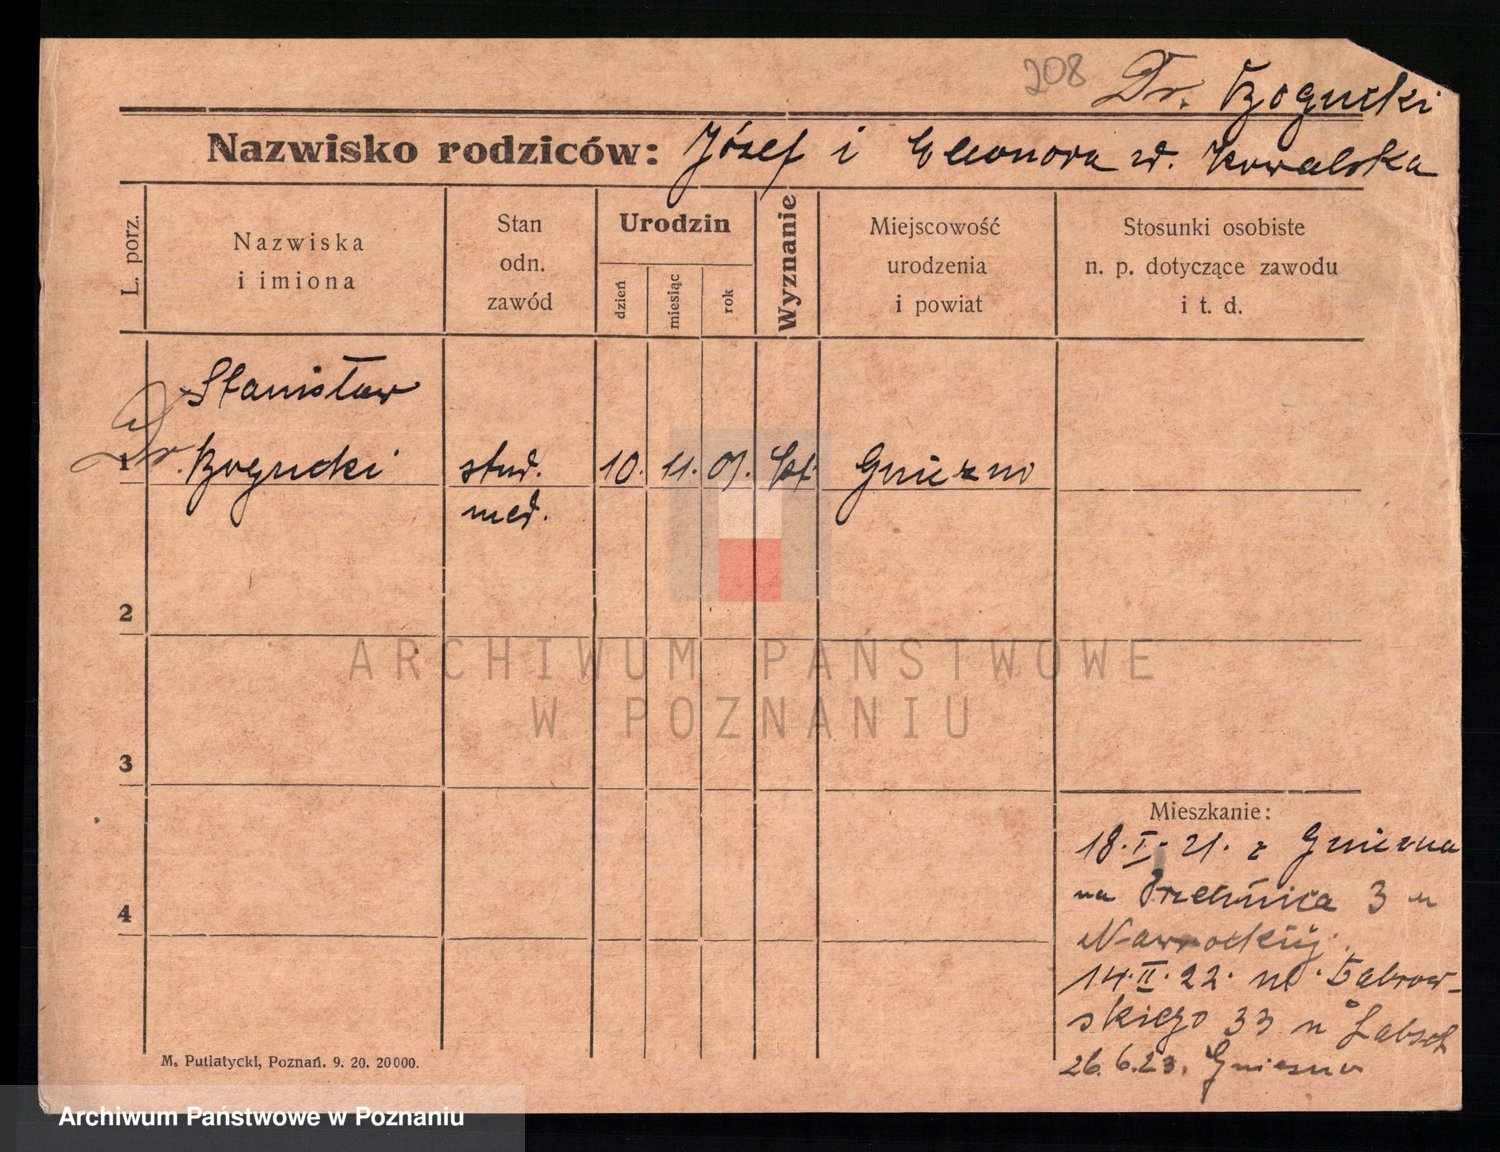 208 Dr. Bogucki
Nazwisko rodziców: Józef i Eleonora z d. Kowalska
L. porz.
Nazwiska
i imiona
Stan
odn.
zawód
Urodzin
dzień
miesiąc
rok
Wyznanie
Miejscowość
urodzenia
i powiat
Stosunki osobiste
n. p. dotyczące zawodu
i t. d.
Stanisław
1 Dr. Bogucki stud. 10. 11. 01. kat. Gniezno
med.
2
3
4
ARCHIWUM PAŃSTWOWE
W POZNANIU
Mieszkanie:
18.I.21. z Gniezna
na 3 u
Nawrockiej.
14.II.22. Dąbrow-
skiego 33 u
26.6.23. Gniezno
M. Putiatycki, Poznań. 9. 20. 20000.
Archiwum Państwowe w Poznaniu